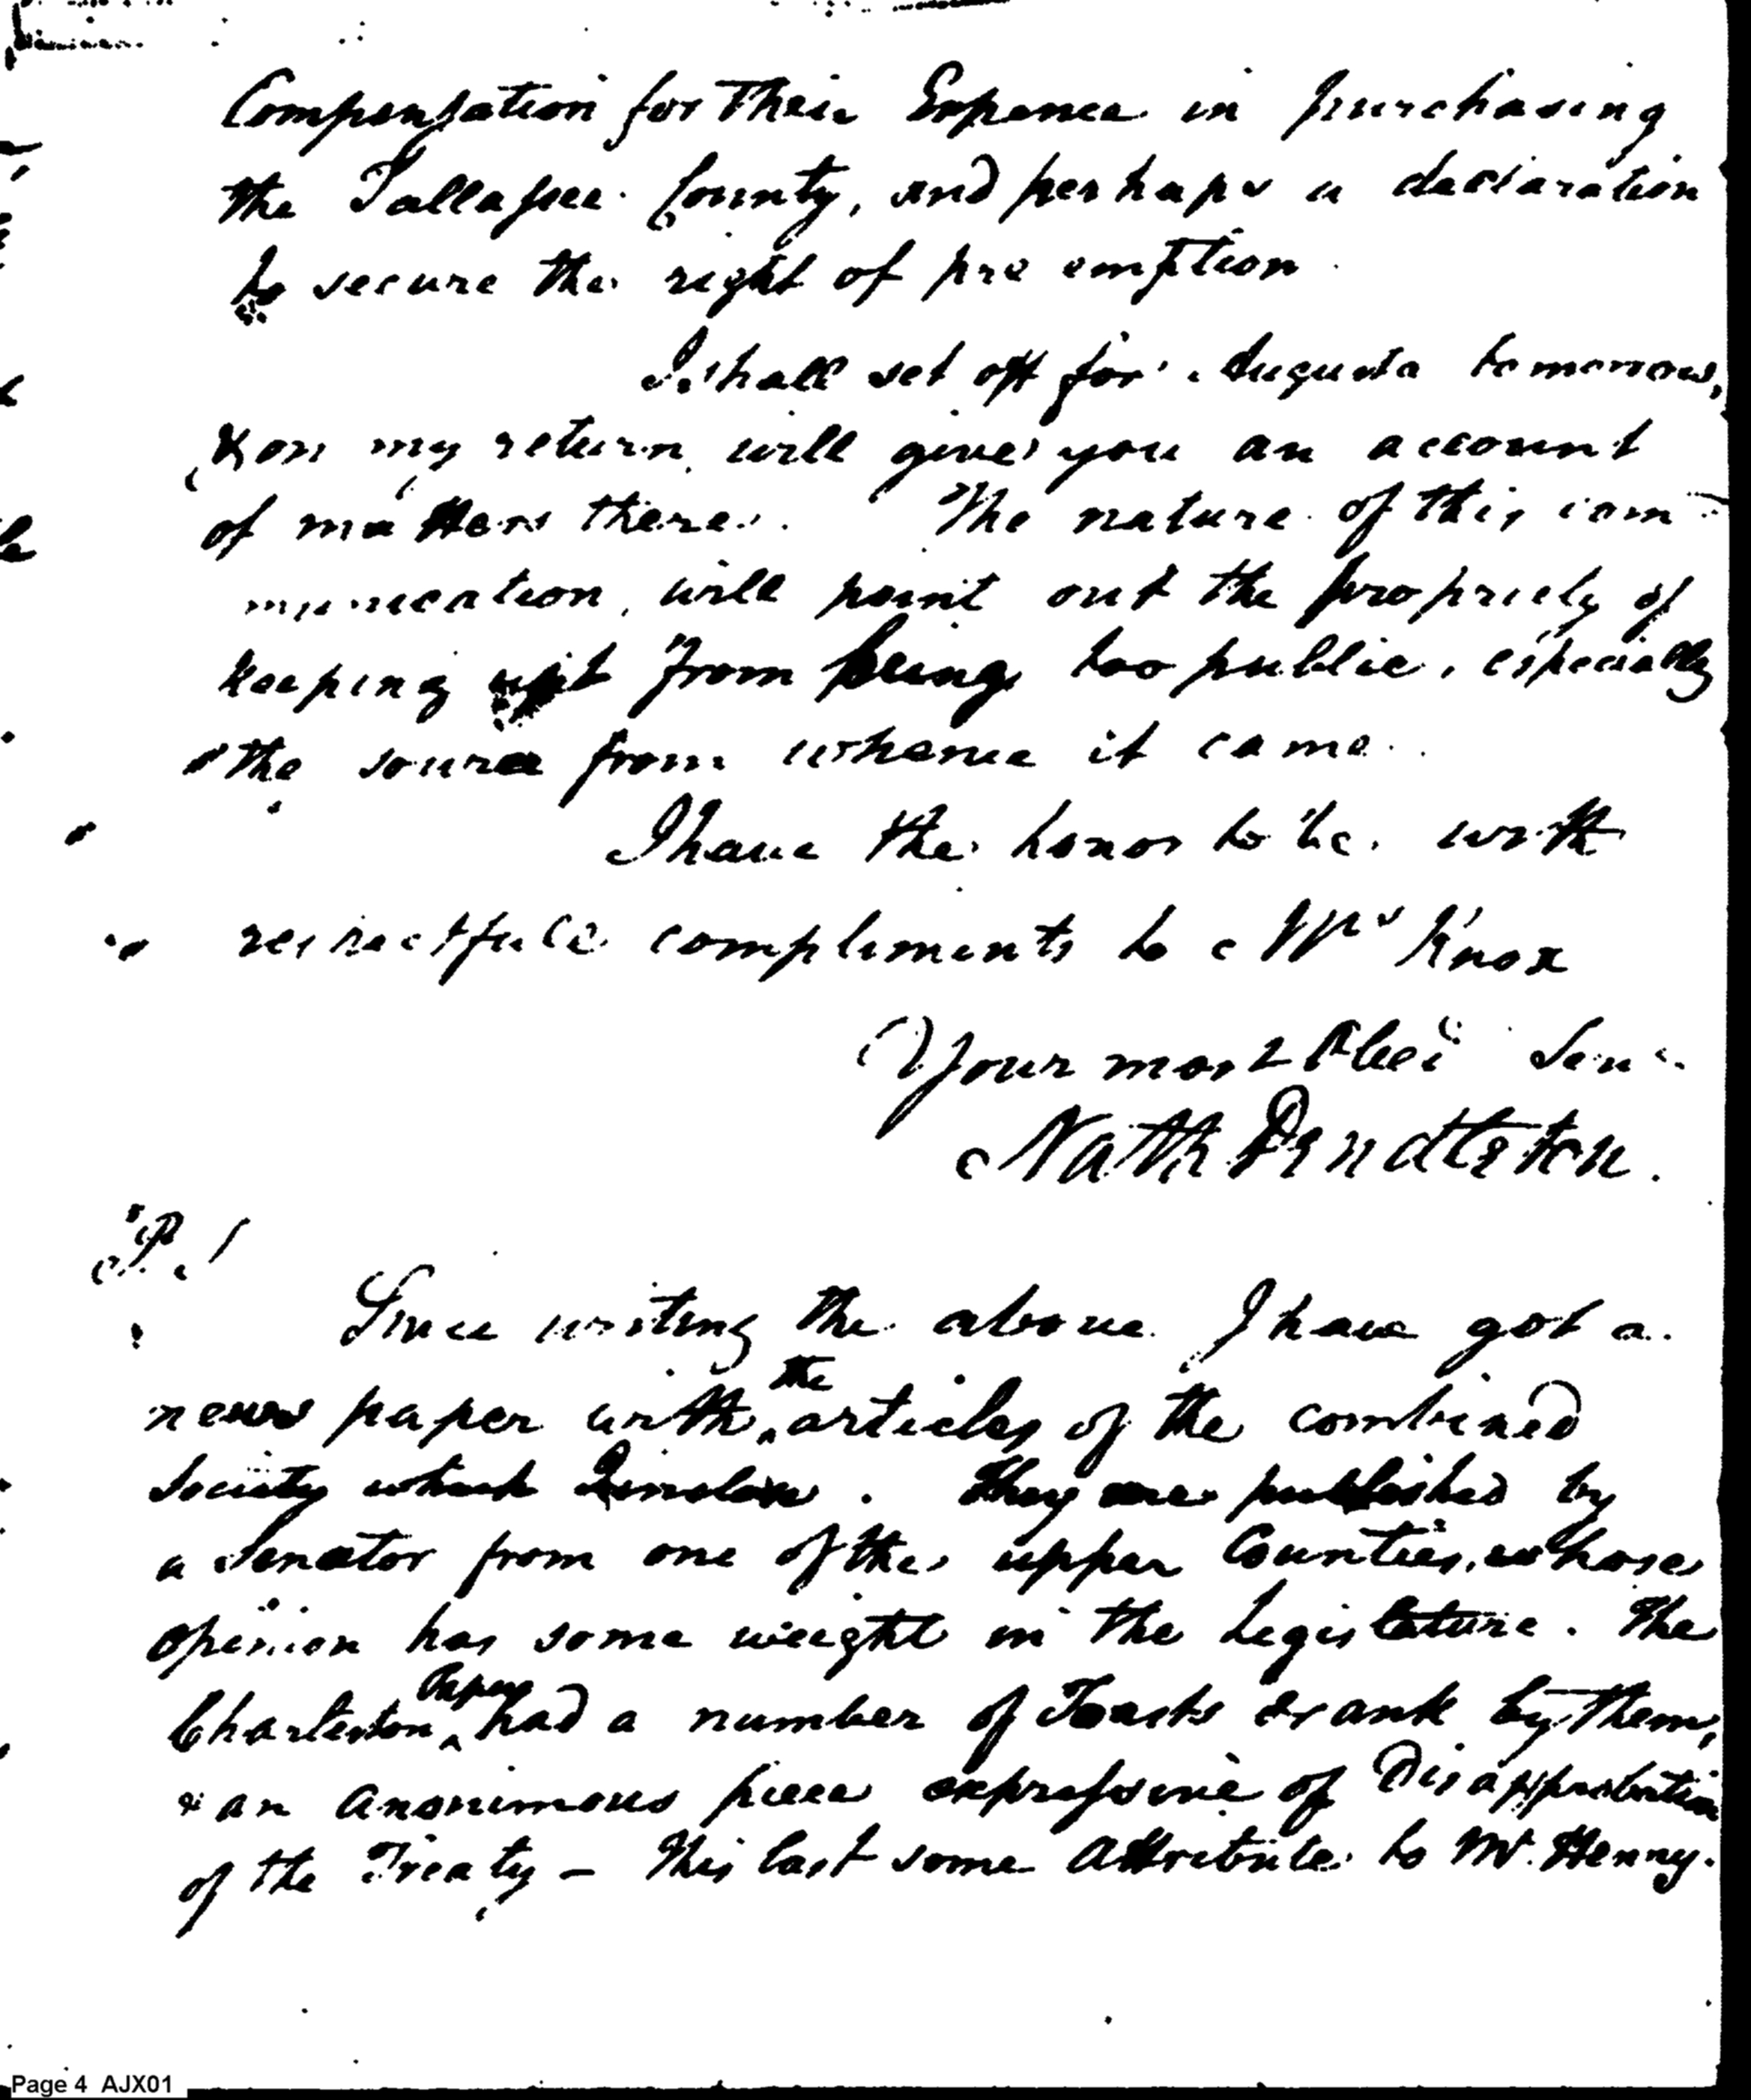 Compensation for their Expence in purchasing
the Tallassee County, and perhaps a declaration
to secure the right of pre emption
I shall set off for Augusta tomorrow,
& on my return will give you an account
of matters there. The nature of this com
munication, will point out the propriety of
keeping it from being too public, especially
the source from whence it came.
I have the honor to be, with
respectfull compliments to Mrs Knox
Your most Obed Serv
Nath Pendleton.
P. S
Since writing the above I have got a
news paper with the articles of the combined
Society which I inclose. They are published by
a Senator from one of the upper Counties, whose
opinion has some weight in the Legislature. The
Charleston Paper had a number of Toasts drank by them,
& an anonimous piece expressive of Disapprobation
of the Treaty – This last some attribute to Mr. Henry.
Page 4 AJX01